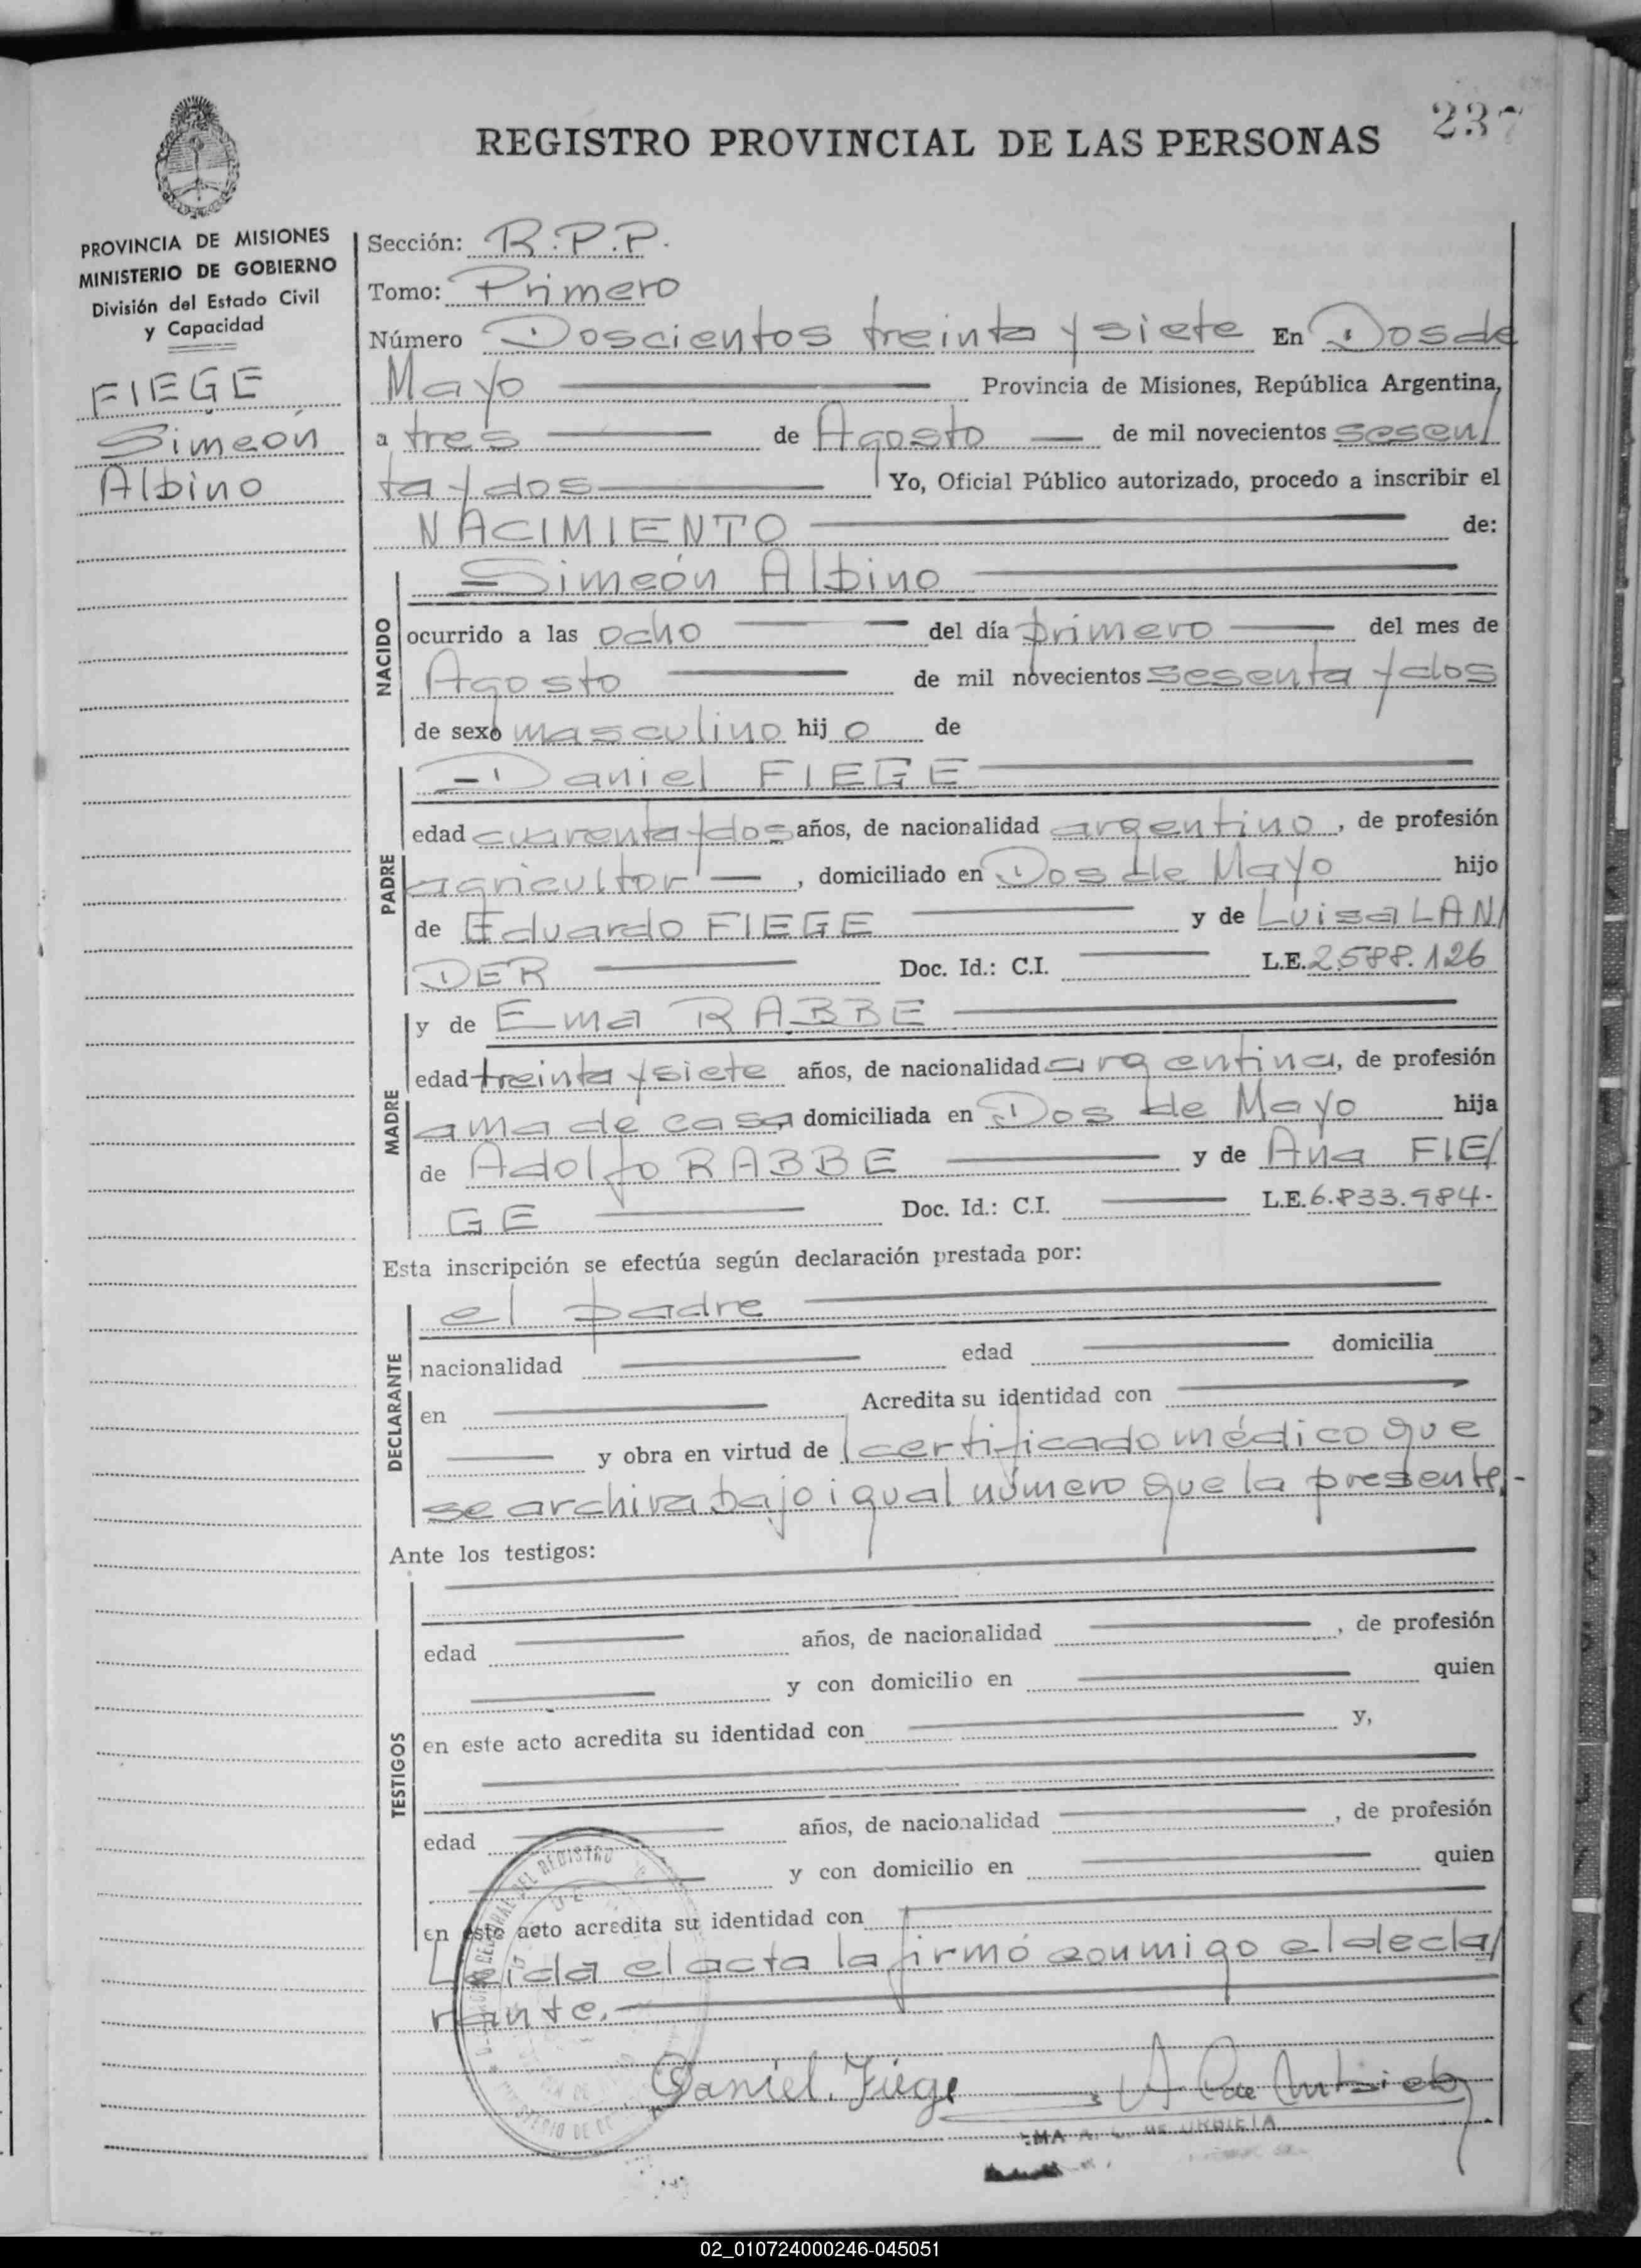 237
REGISTRO PROVINCIAL DE LAS PERSONAS
PROVINCIA DE MISIONES
MINISTERIO DE GOBIERNO
División del Estado Civil
y Capacidad
FIEGE
Simeón
Albino
Sección: R.P.P.
Tomo: Primero
Número Doscientos treinta y siete En Dos de
Mayo Provincia de Misiones, República Argentina,
a tres de Agosto de mil novecientos sesen/
ta y dos Yo, Oficial Público autorizado, procedo a inscribir el
NACIMIENTO de:
NACIDO
Simeón Albino
ocurrido a las ocho del día primero del mes de
Agosto de mil novecientos sesenta y dos
de sexo masculino hij o de
PADRE
Daniel FIEGE
edad cuarenta y dos años, de nacionalidad argentino, de profesión
agricultor, domiciliado en Dos de Mayo hijo
de Eduardo FIEGE y de Luisa LAN/
DER Doc. Id.: C.I. L.E. 2.588.126
MADRE
y de Ema RABBE
edad treinta y siete años, de nacionalidad argentina, de profesión
ama de casa domiciliada en Dos de Mayo hija
de Adolfo RABBE y de Ana FIE/
GE Doc. Id.: C.I. L.E. 6.833.984.-
Esta inscripción se efectúa según declaración prestada por:
DECLARANTE
el padre
nacionalidad edad domicilia
en Acredita su identidad con
y obra en virtud de certificado médico que
se archiva bajo igual número que la presente.-
Ante los testigos:
TESTIGOS
edad años, de nacionalidad , de profesión
y con domicilio en quien
en este acto acredita su identidad con y,
edad años, de nacionalidad , de profesión
y con domicilio en quien
en este acto acredita su identidad con
Leída el acta la firmó conmigo el decla/
rante.
Daniel. Fiege
DE URBIETA
02_010724000246-045051